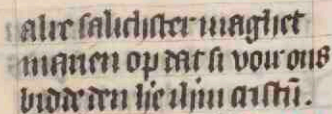 alre salichster maghet
manen op dat si voir ons
bidde den he ihm cristū.